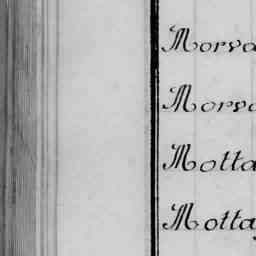 Morva
Morva
Motta
Motta